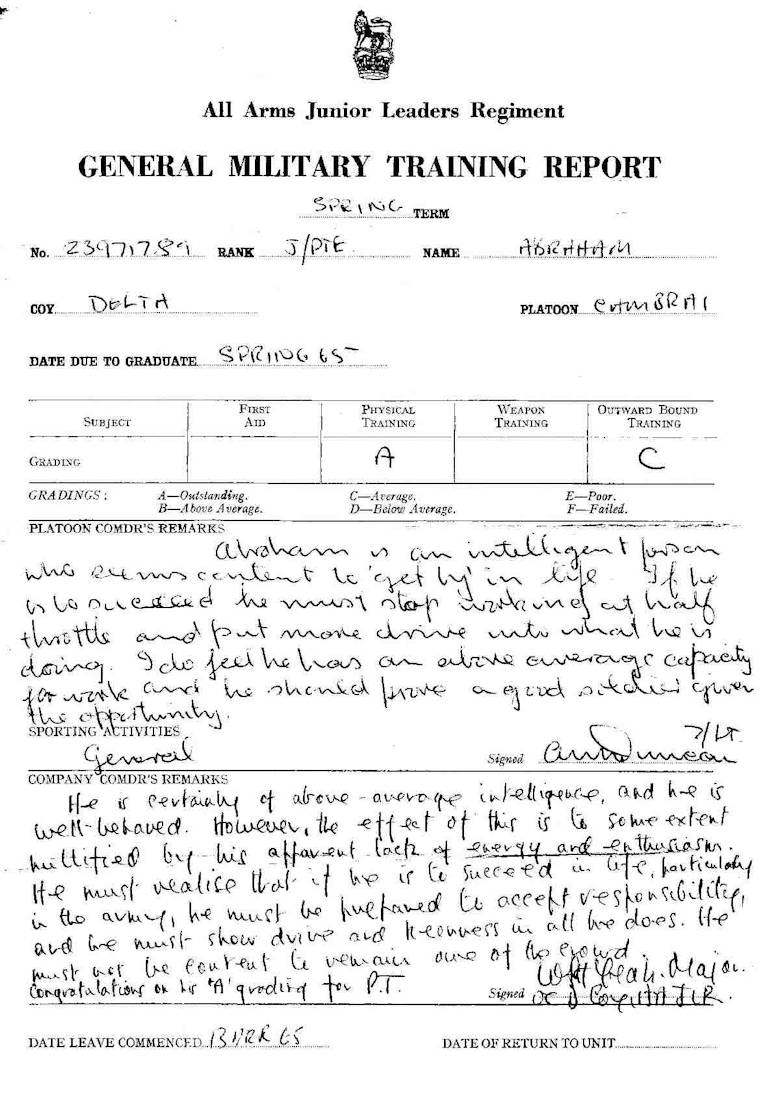 All Arms Junior Leaders Regiment
GENERAL MILITARY TRAINING REPORT
SPRING TERM
No. 23971789 RANK J/PTE NAME ABRAHAM
COY DELTA PLATOON CAMBRAI
DATE DUE TO GRADUATE SPRING 65
SUBJECT FIRST AID PHYSICAL TRAINING WEAPON TRAINING OUTWARD BOUND TRAINING
GRADING A C
GRADINGS: A—Outstanding. C—Average. E—Poor.
B—Above Average. D—Below Average. F—Failed.
PLATOON COMDR'S REMARKS
Abraham is an intelligent person
who seems content to 'get by' in life. If he
is to succeed he must stop working at half
throttle and put more drive into what he is
doing. I do feel he has an above average capacity
for work and he should prove a good soldier given
the opportunity.
SPORTING ACTIVITIES
General Signed Duncan
COMPANY COMDR'S REMARKS
He is certainly of above-average intelligence, and he is
well-behaved. However, the effect of this is to some extent
nullified by his apparent lack of energy and enthusiasm.
He must realise that if he is to succeed in life, particularly
in the army, he must be prepared to accept responsibility,
and he must show drive and keenness in all he does. He
must not be content to remain one of the crowd.
Congratulations on his 'A' grading for P.T. Major.
Signed OC D Coy
DATE LEAVE COMMENCED 13 APR 65 DATE OF RETURN TO UNIT